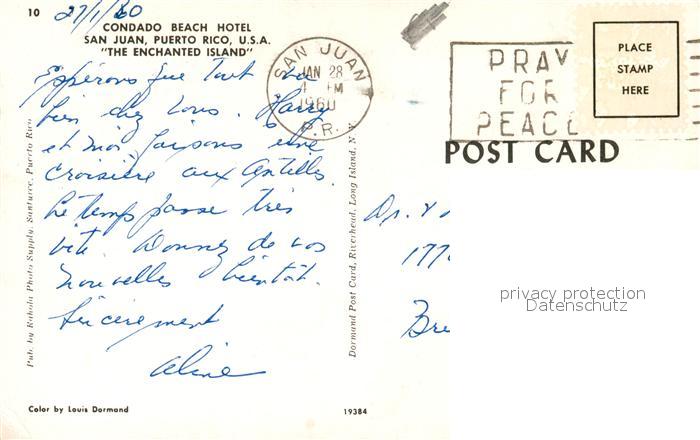 10
27/1/60
CONDADO BEACH HOTEL
SAN JUAN, PUERTO RICO, U.S.A.
"THE ENCHANTED ISLAND"
Espérons que tout va
bien chez vous. Harry
et moi faisons une
croisière aux Antilles.
Le temps passe très
vite. Donnez de vos
nouvelles bientôt.
Sincèrement
Aline
Color by Louis Dormand
19384
Pub. by Rahola Photo Supply, Santurce, Puerto Rico
Dormand Post Card, Riverhead, Long Island, N.Y.
SAN JUAN
JAN 28
PM
1960
P.R.
PRAY
FOR
PEACE
PLACE
STAMP
HERE
POST CARD
Dr. &
177
Bre
privacy protection
Datenschutz